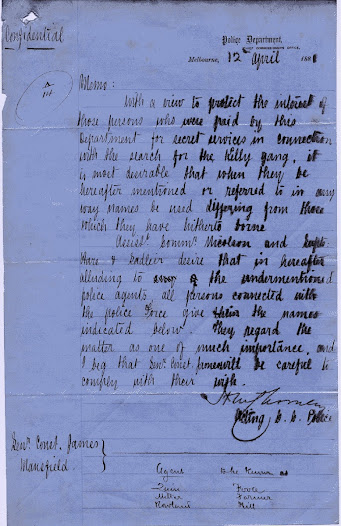 Confidential
Police Department,
CHIEF COMMISSIONER'S OFFICE,
Melbourne, 12th April 1881
Memo:
With a view to protect the interest of
those persons who were paid by this
Department for secret services in connection
with the search for the Kelly gang, it
is most desirable that when they be
hereafter mentioned or referred to in any
way names be used differing from those
which they have hitherto borne
Assist. Commr. Nicolson and Supts
Hare & Sadleir desire that in hereafter
alluding to any of the undermentioned
police agents, all persons connected with
the police force give them the names
indicated below. They regard the
matter as one of much importance, and
I beg that Senr. Const. James will be careful to
comply with their wish.
Acting C. C. Police
Senr. Const. James
Mansfield
Agent to be known as
Quin Foote
Miller Farmer
Rowland Hill